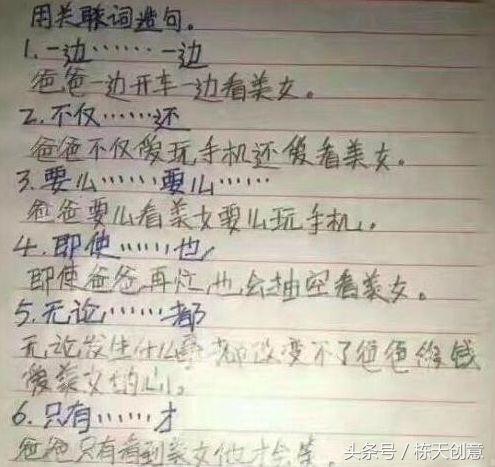 用关联词造句。
1.一边……一边
爸爸一边开车一边看美女。
2.不仅……还
爸爸不仅爱玩手机还爱看美女。
3.要么……要么……
爸爸要么看美女要么玩手机。
4.即使……也
即使爸爸再忙,也会抽空看美女。
5.无论……都
无论发生什么事都改变不了爸爸爱钱
爱美女的心。
6.只有……才
爸爸只有看到美女他才会笑。
头条号 / 栋天创意